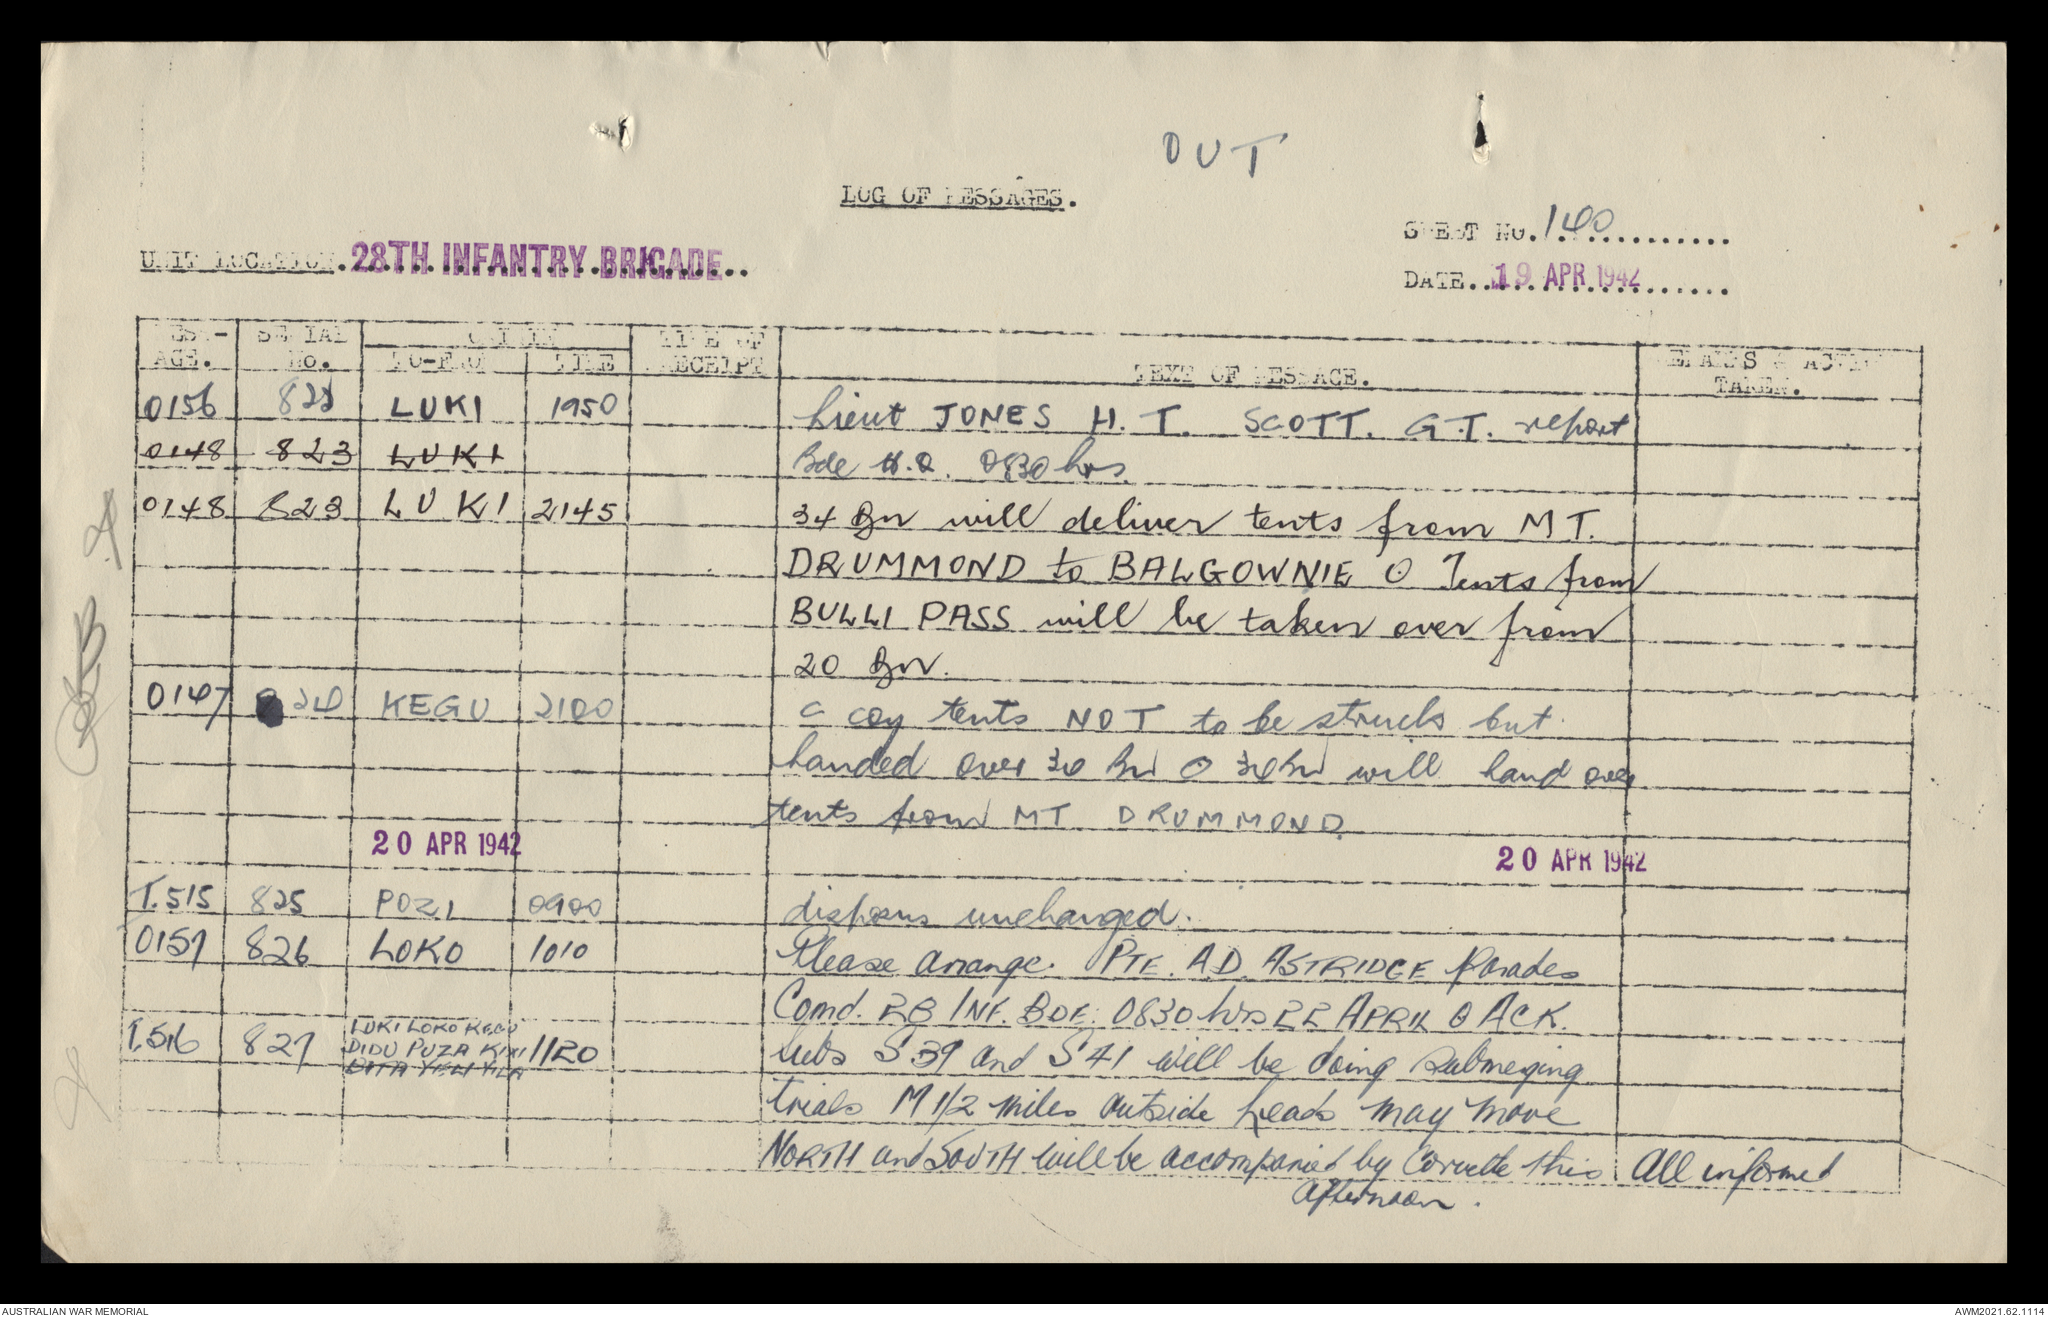 OUT
LOG OF MESSAGES.
SHEET NO. 140
UNIT LOCATION. 28TH INFANTRY BRIGADE
DATE. 19 APR 1942
MESS-AGE. SERIAL No. ORIGIN TO-FROM TIME TIME OF RECEIPT TEXT OF MESSAGE. REMARKS & ACTION TAKEN.
0156 822 LUKI 1950 Lieut JONES H.T. SCOTT. G.T. report
0148 823 LUKI Bde H.Q. 0830 hrs.
0148 823 LUKI 2145 34 Bn will deliver tents from MT.
DRUMMOND to BALGOWNIE O Tents from
BULLI PASS will be taken over from
20 Bn.
0147 824 KEGU 2100 C coy tents NOT to be struck but
handed over 34 Bn O 34 Bn will hand over
tents from MT DRUMMOND
20 APR 1942 20 APR 1942
T.515 825 POZI 0900 disposns unchanged.
0157 826 LOKO 1010 Please arrange. PTE. A.D. ASTRIDGE Parades
Comd. 28 INF. BDE. 0830 hrs 22 APRIL O ACK.
T.516 827 LUKI LOKO KEGU DIDU PUZA KIXI 1120 Subs S39 and S41 will be doing submerging
trials M 1/2 miles outside heads may move
NORTH and SOUTH will be accompanied by Corvette this All informed
afternoon.
AUSTRALIAN WAR MEMORIAL AWM2021.62.1114